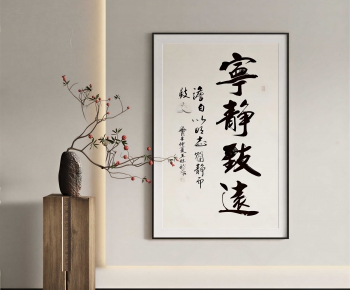 寧靜致遠
澹泊以明志寧靜而
致遠